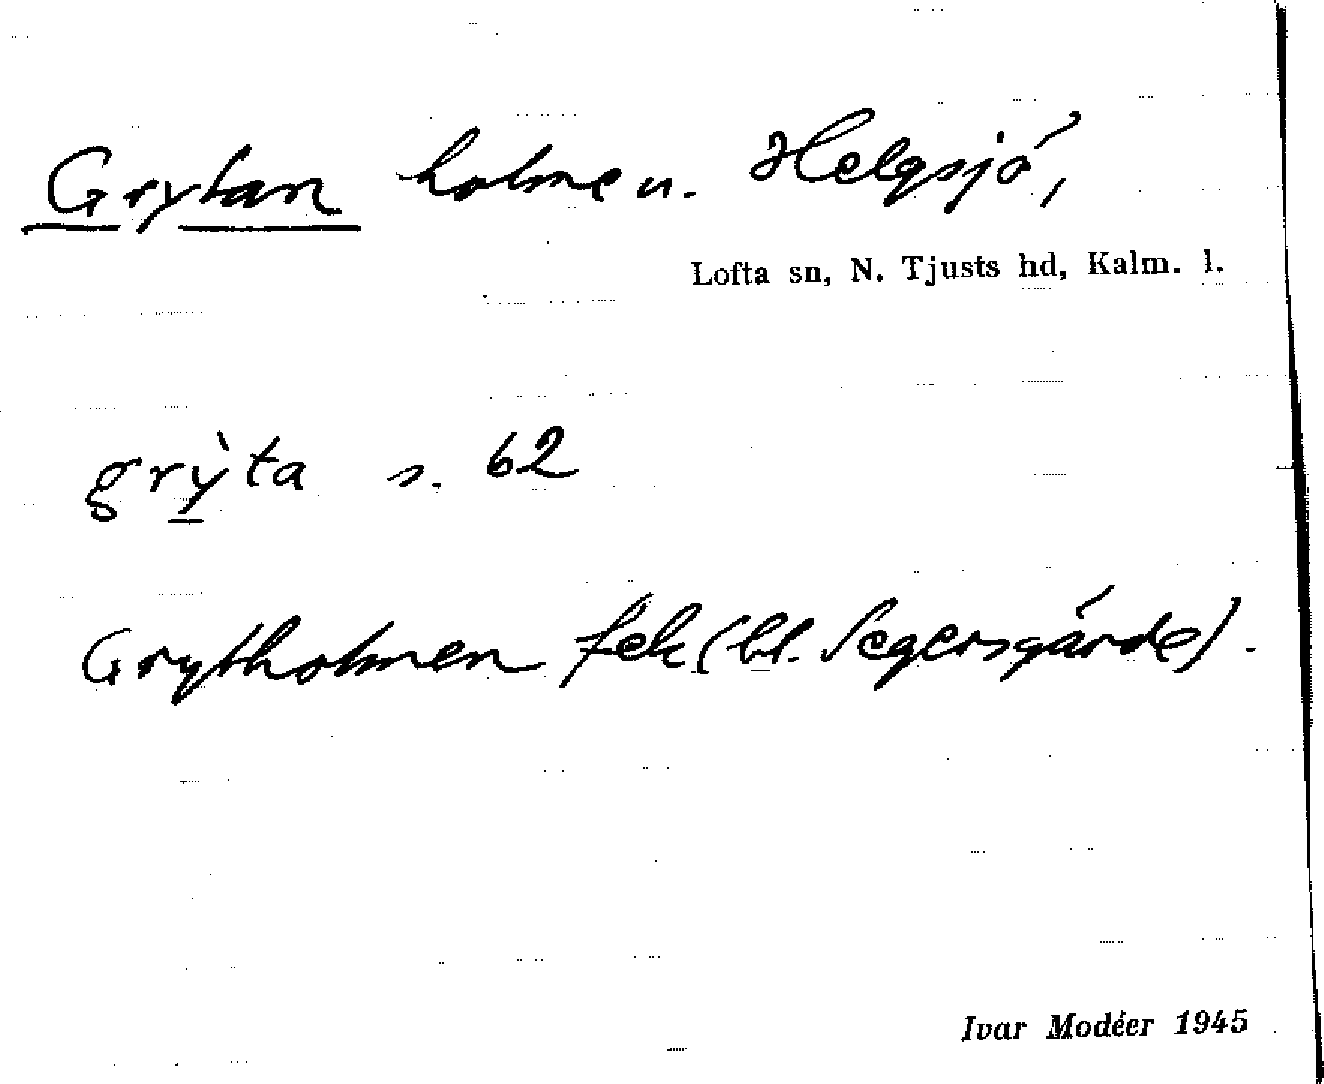 Grytan holmen. Helgsjö,
Lofta sn, N. Tjusts hd, Kalm. l.
grỳta s. 62
Grytholmen fek (bl. Segersgärde).
Ivar Modéer 1945